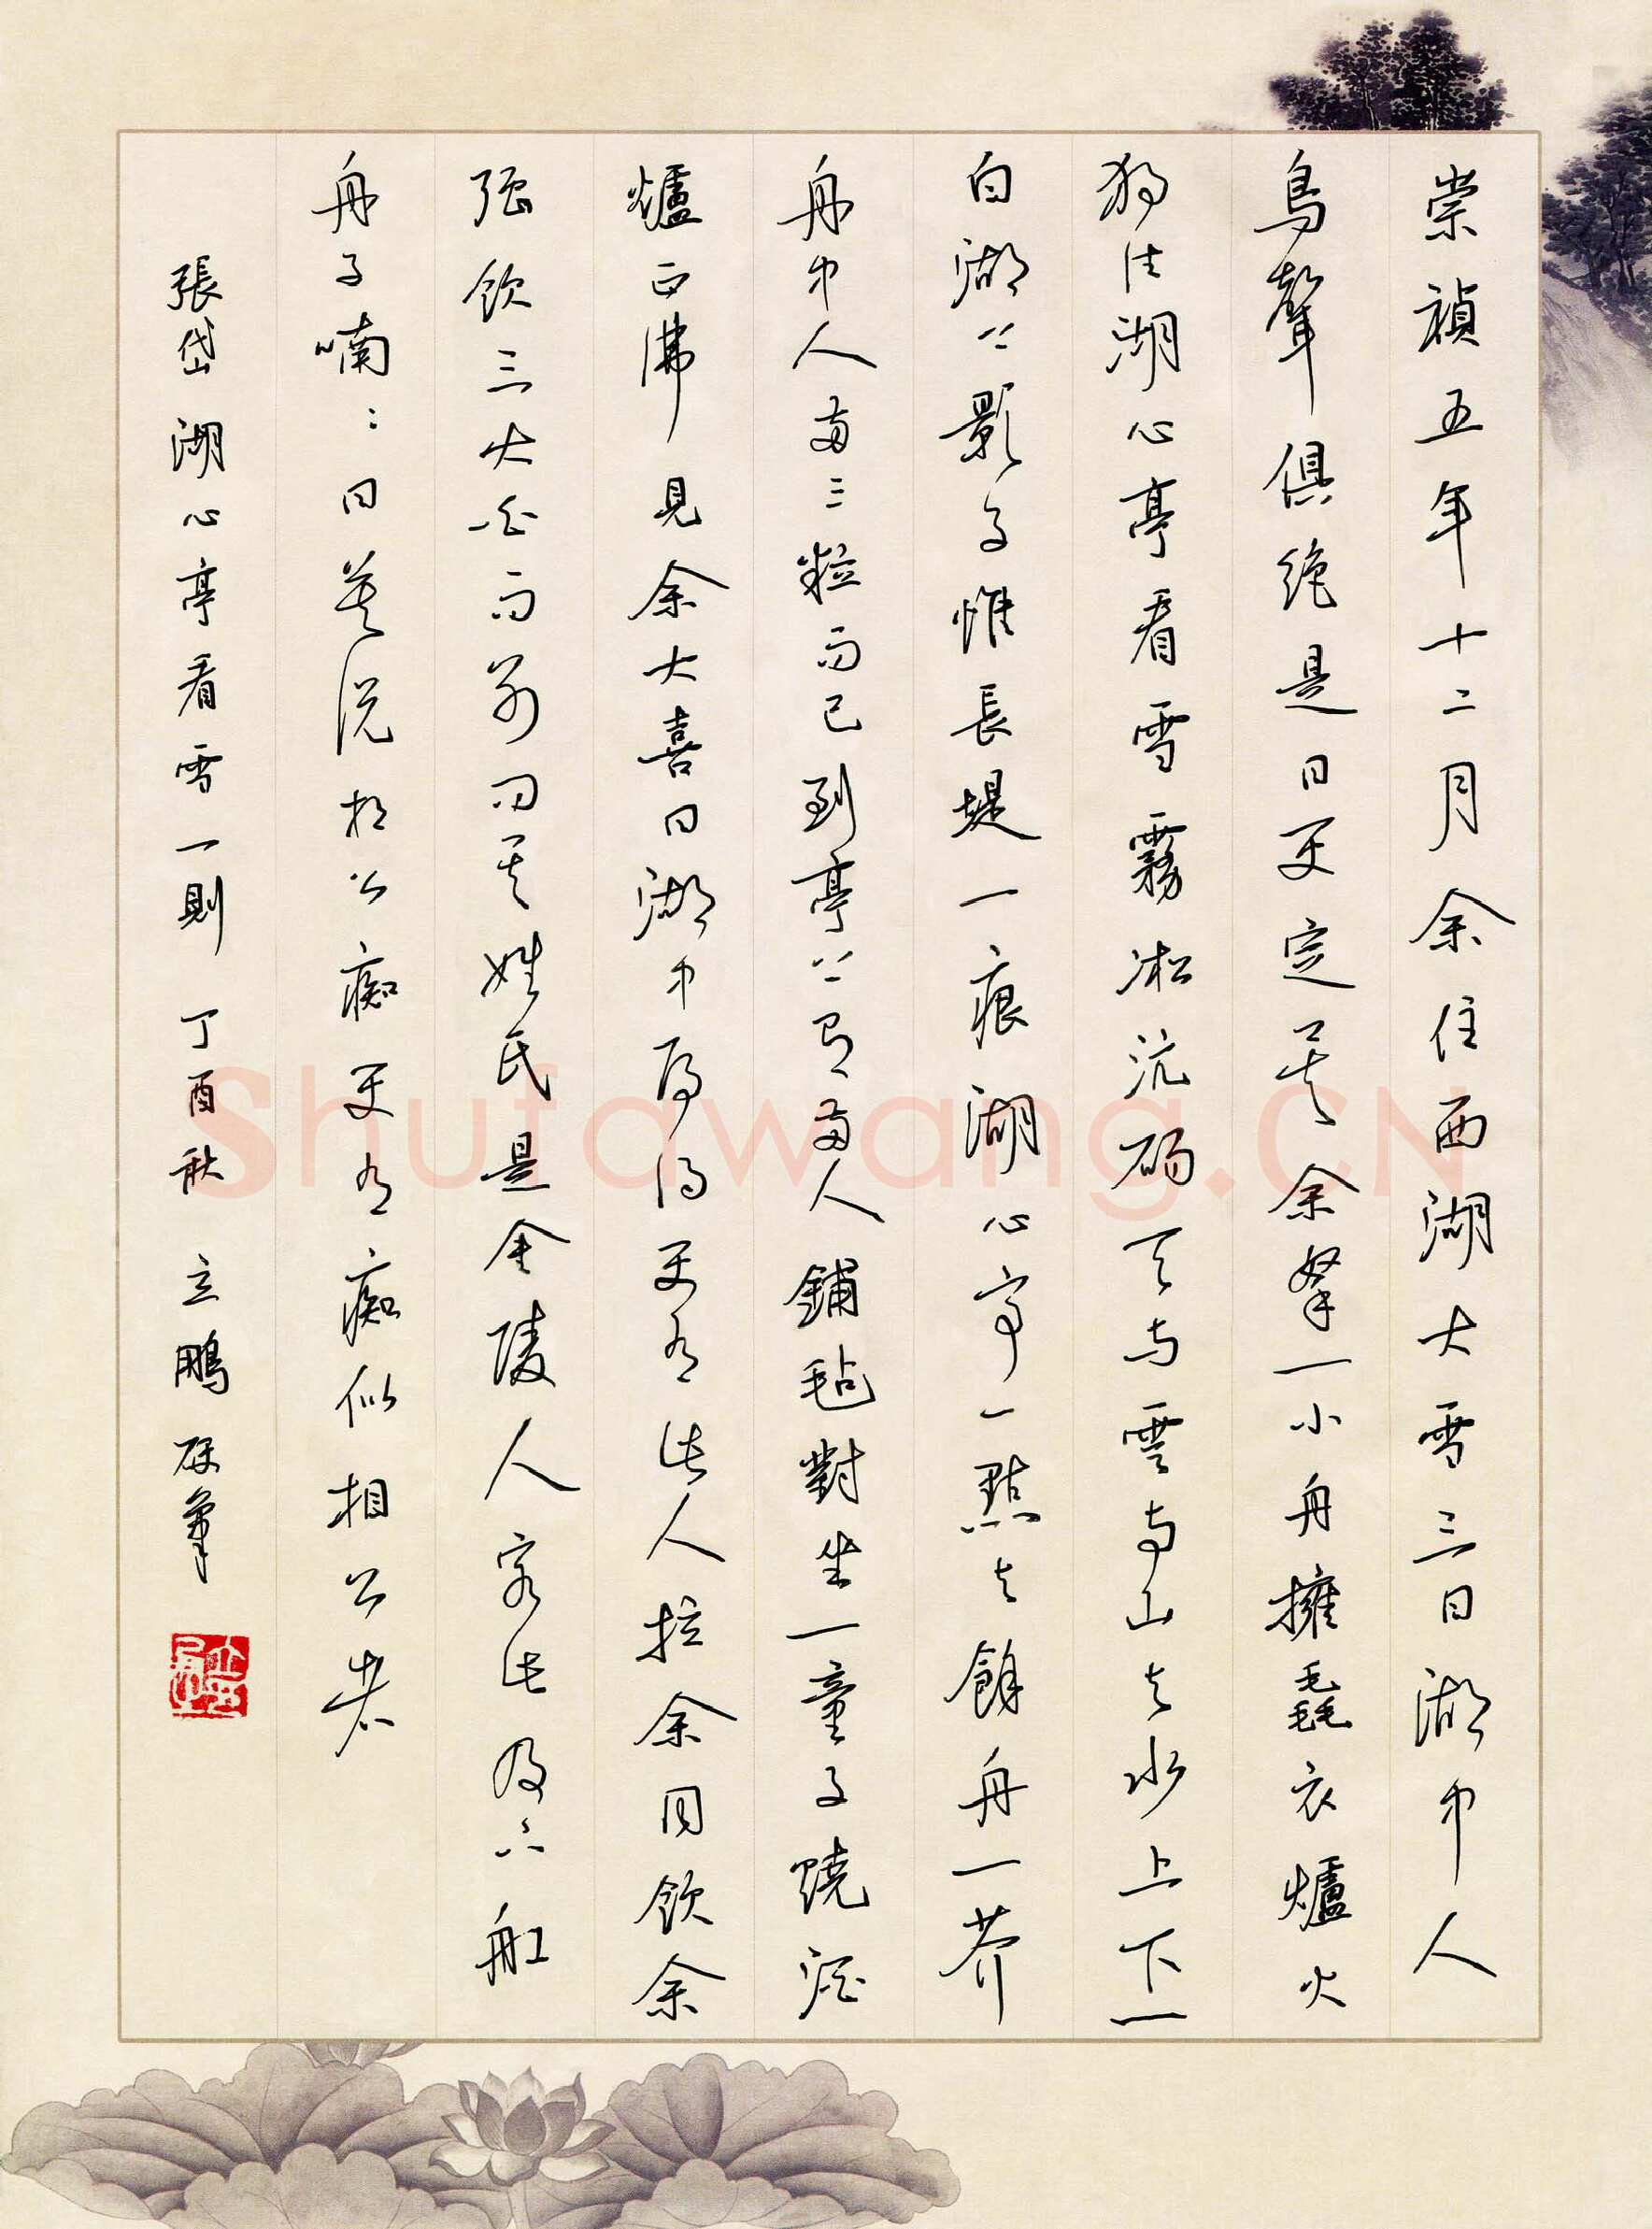 崇禎五年十二月余住西湖大雪三日湖中人
鳥聲俱絶是日更定矣余拏一小舟擁毳衣爐火
獨往湖心亭看雪霧凇沆碭天与雲与山与水上下一
白湖上影子惟長堤一痕湖心亭一點与餘舟一芥
舟中人兩三粒而已到亭上有兩人鋪毡對坐一童子燒酒
爐正沸見余大喜曰湖中焉得更有此人拉余同飲余
强飲三大白而別問其姓氏是金陵人客此及下船
舟子喃：曰莫説相公痴更有痴似相公者
張岱湖心亭看雪一則 丁酉秋 立鵬 硬筆
Shufawang.CN